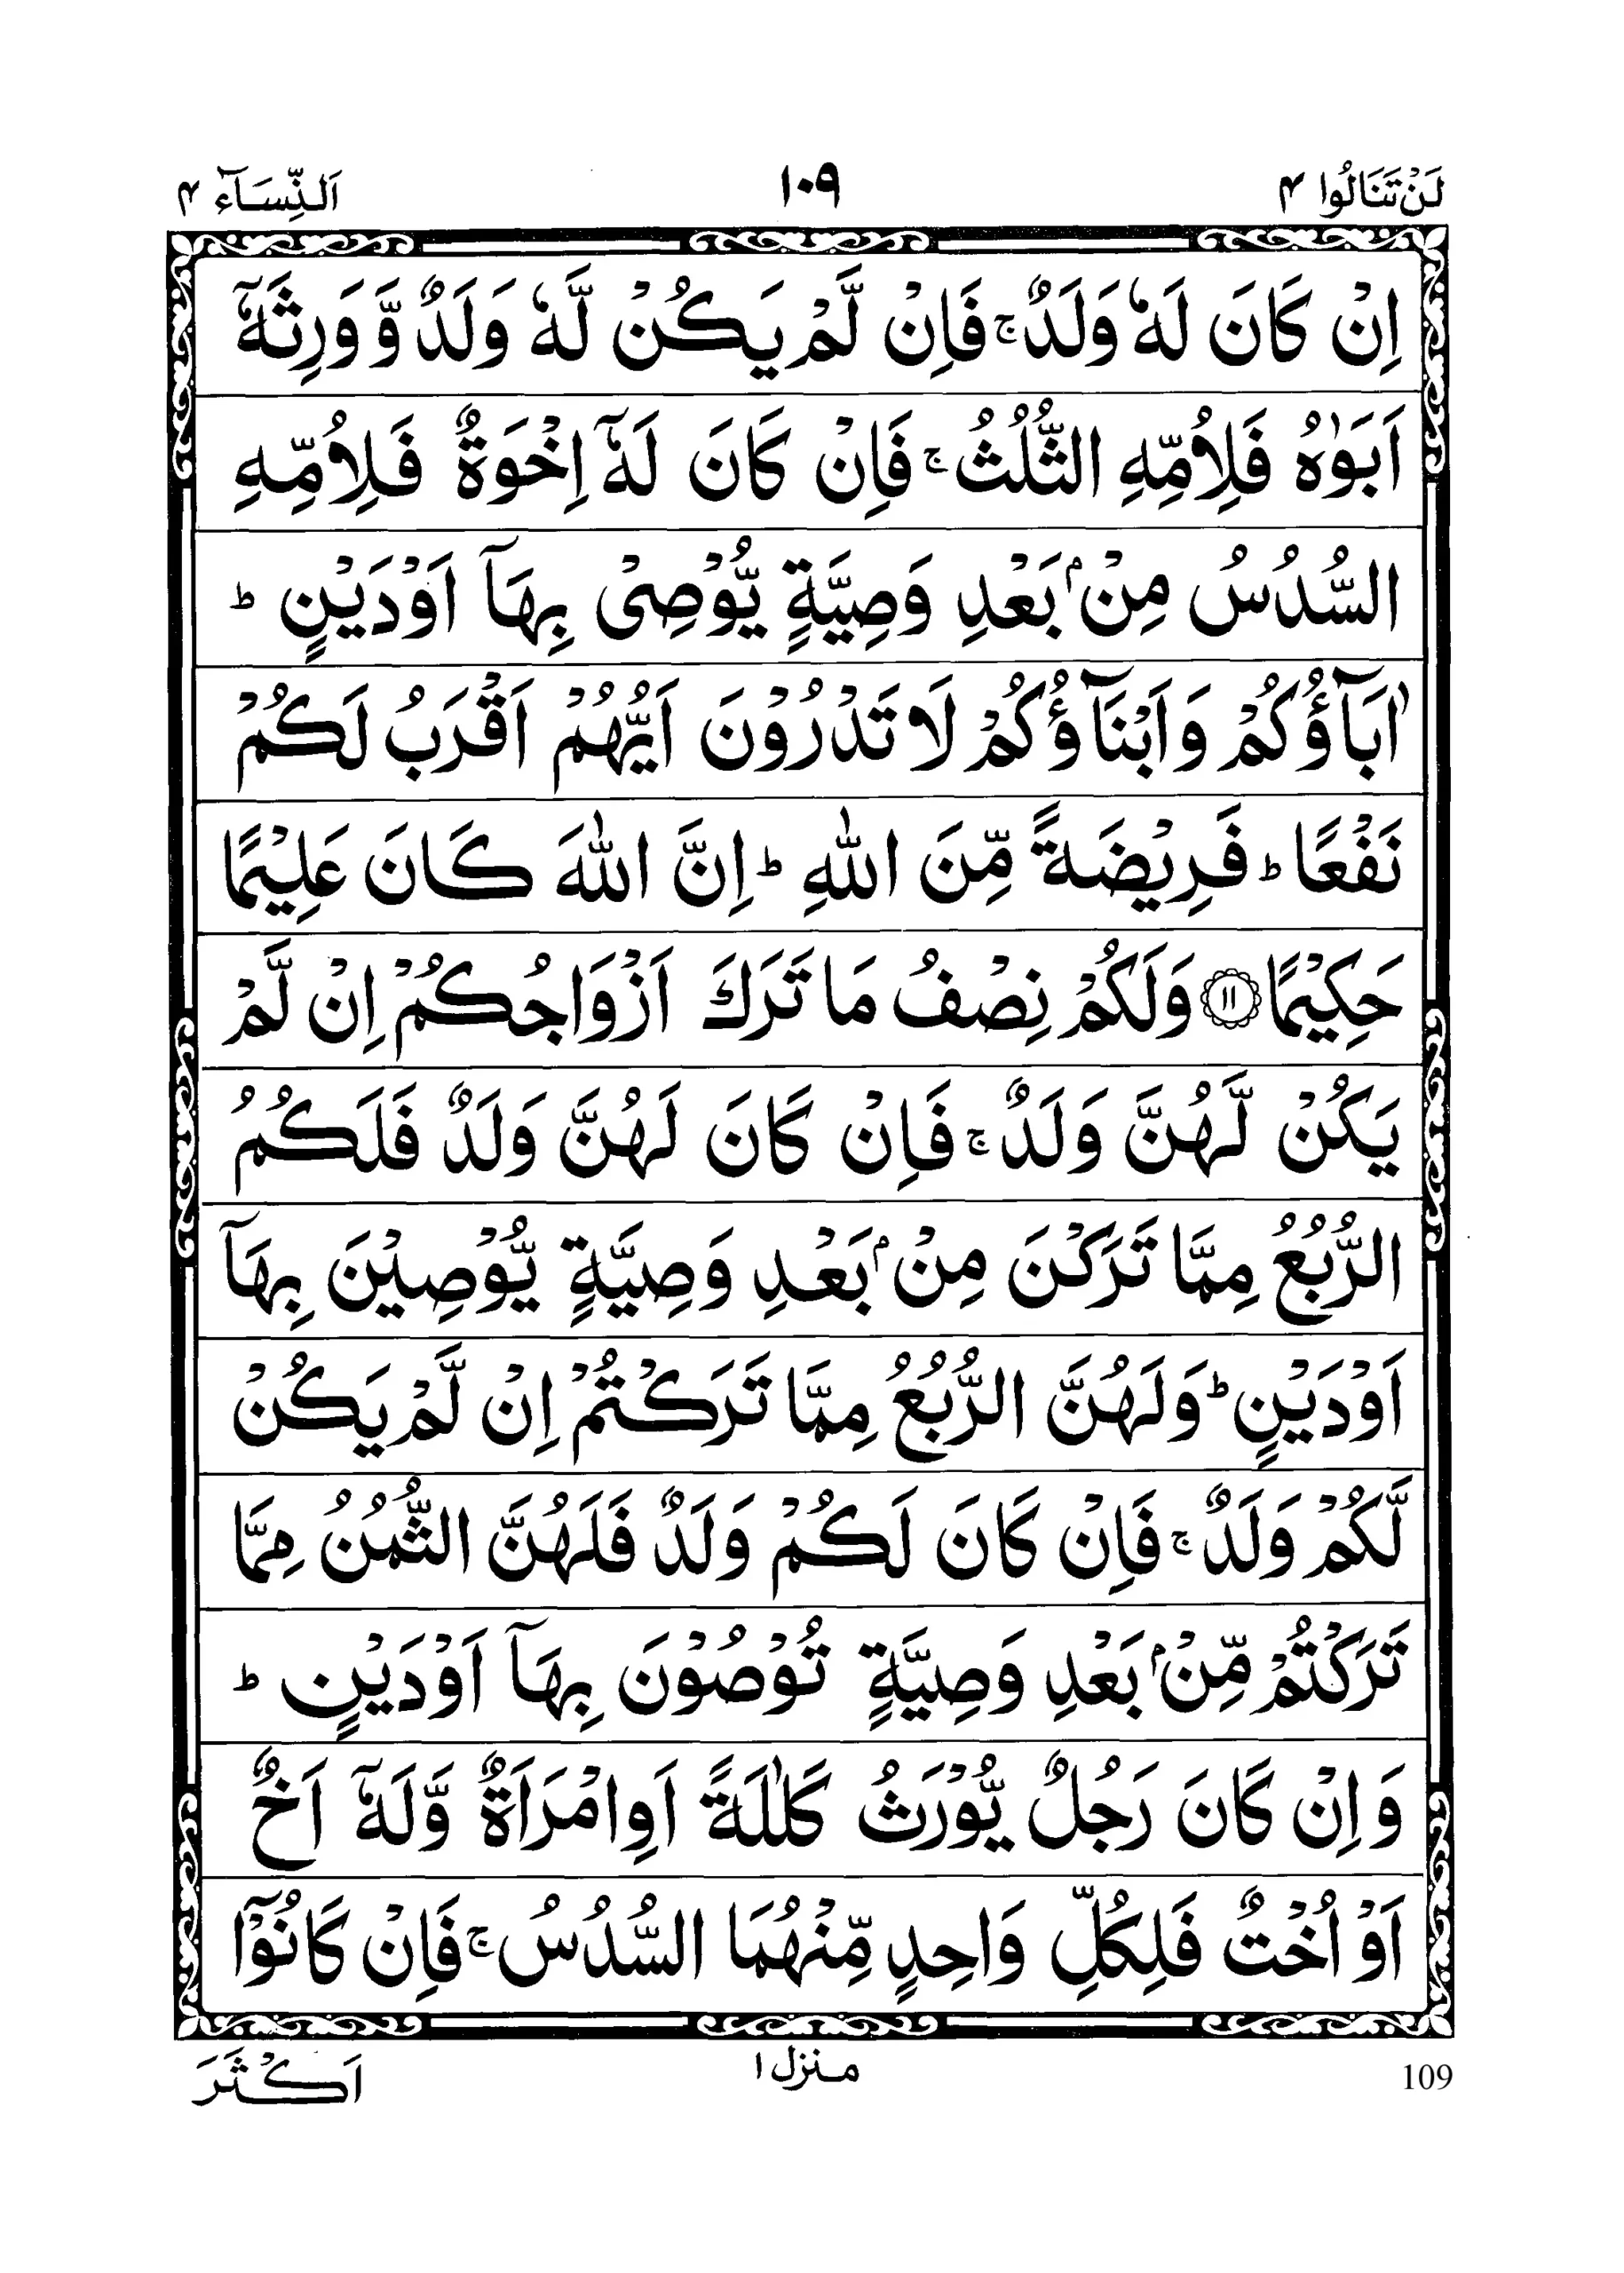 لَنْ تَنَالُوا ۴ ١٠٩ اَلنِّسَآء ۴
اِنْ كَانَ لَهٗ وَلَدٌ ۚ فَاِنْ لَّمْ يَكُنْ لَّهٗ وَلَدٌ وَّ وَرِثَهٗۤ
اَبَوٰهُ فَلِاُمِّهِ الثُّلُثُ ۚ فَاِنْ كَانَ لَهٗۤ اِخْوَةٌ فَلِاُمِّهِ
السُّدُسُ مِنْۢ بَعْدِ وَصِيَّةٍ يُّوْصِىْ بِهَاۤ اَوْ دَيْنٍ ؕ
اٰبَآؤُكُمْ وَاَبْنَآؤُكُمْ لَا تَدْرُوْنَ اَيُّهُمْ اَقْرَبُ لَكُمْ
نَفْعًا ؕ فَرِيْضَةً مِّنَ اللّٰهِ ؕ اِنَّ اللّٰهَ كَانَ عَلِيْمًا
حَكِيْمًا ۝۱۱ وَلَكُمْ نِصْفُ مَا تَرَكَ اَزْوَاجُكُمْ اِنْ لَّمْ
يَكُنْ لَّهُنَّ وَلَدٌ ۚ فَاِنْ كَانَ لَهُنَّ وَلَدٌ فَلَكُمُ
الرُّبُعُ مِمَّا تَرَكْنَ مِنْۢ بَعْدِ وَصِيَّةٍ يُّوْصِيْنَ بِهَاۤ
اَوْ دَيْنٍ ؕ وَلَهُنَّ الرُّبُعُ مِمَّا تَرَكْتُمْ اِنْ لَّمْ يَكُنْ
لَّكُمْ وَلَدٌ ۚ فَاِنْ كَانَ لَكُمْ وَلَدٌ فَلَهُنَّ الثُّمُنُ مِمَّا
تَرَكْتُمْ مِّنْۢ بَعْدِ وَصِيَّةٍ تُوْصُوْنَ بِهَاۤ اَوْ دَيْنٍ ؕ
وَاِنْ كَانَ رَجُلٌ يُّوْرَثُ كَلٰلَةً اَوِ امْرَاَةٌ وَّلَهٗۤ اَخٌ
اَوْ اُخْتٌ فَلِكُلِّ وَاحِدٍ مِّنْهُمَا السُّدُسُ ۚ فَاِنْ كَانُوْۤا
109 منزل ١ اَكْثَرَ